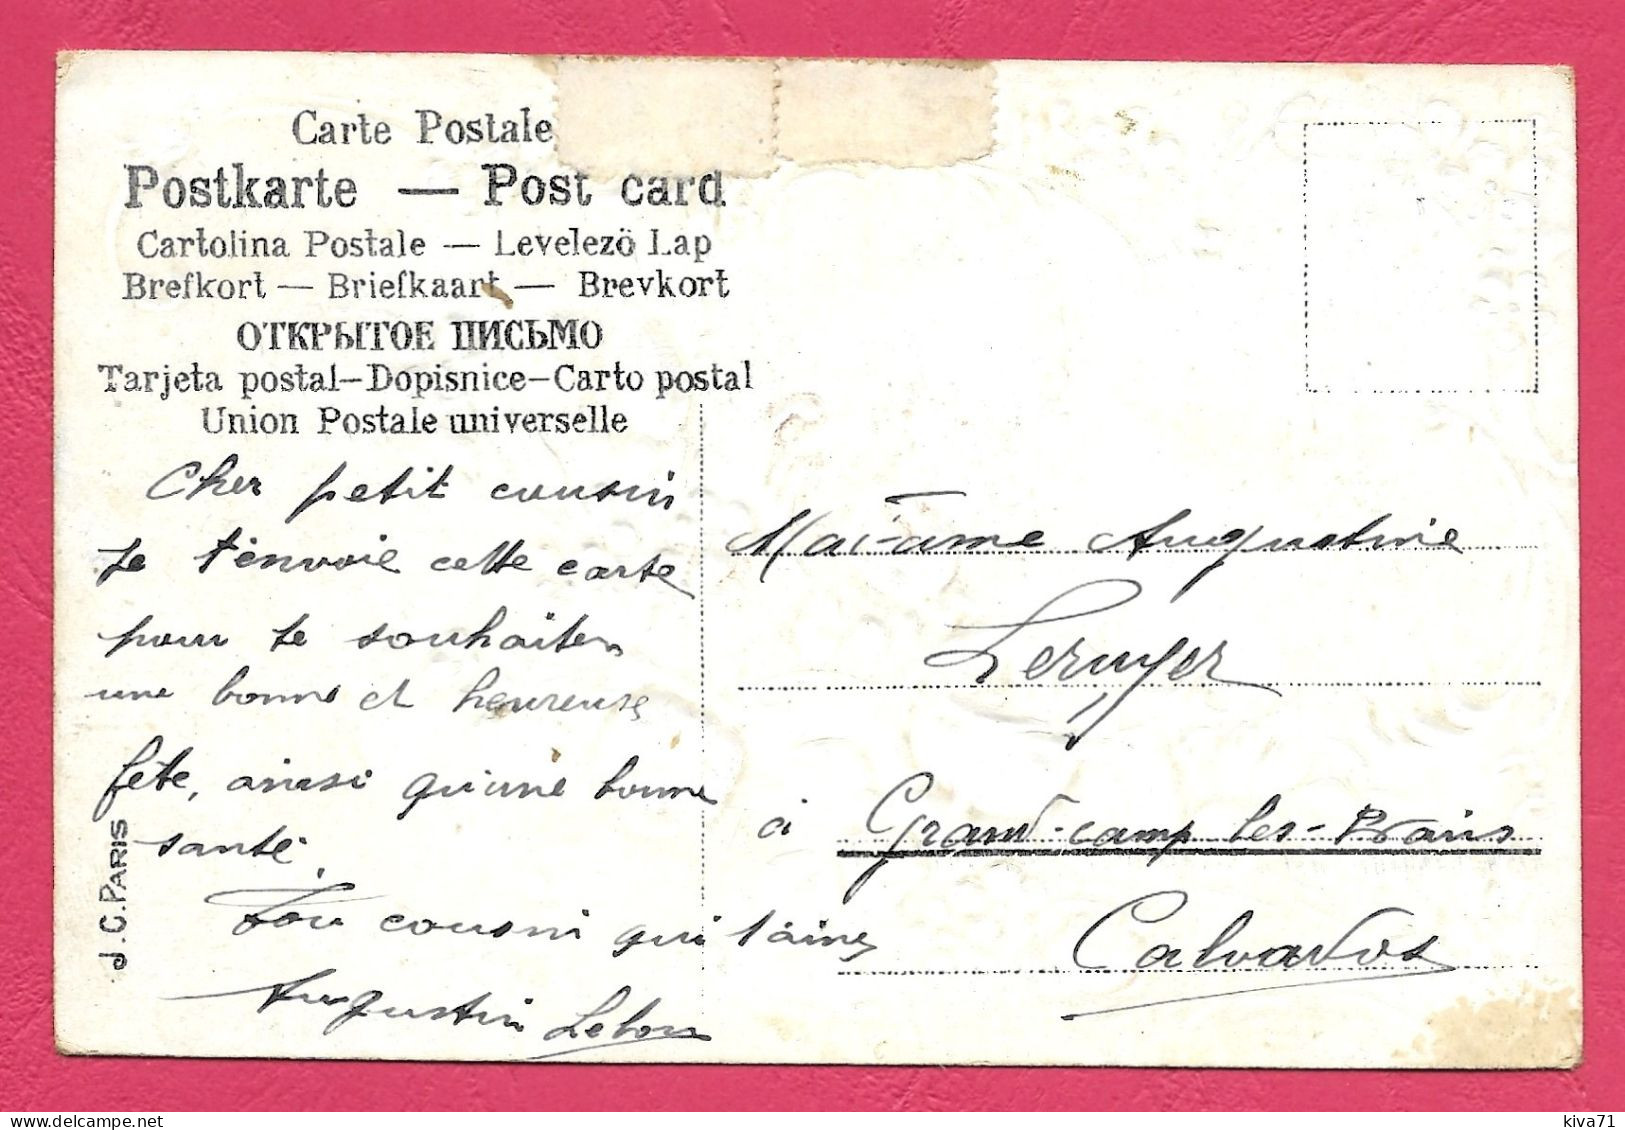 Carte Postale
Postkarte — Post card
Cartolina Postale — Levelezö Lap
Brefkort — Briefkaart — Brevkort
ОТКРЫТОЕ ПИСЬМО
Tarjeta postal–Dopisnice–Carto postal
Union Postale universelle
Cher petit cousin
Je t'envoie cette carte
pour te souhaiter
une bonne et heureuse
fête, ainsi qu'une bonne
santé.
Ton cousin qui t'aime
Augustin
J.C. PARIS
Madame Augustine
Leruyer
à Grand-camp les-Bains
Calvados
kiva71